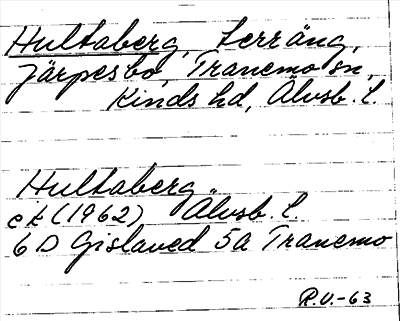 Hultaberg, terräng,
Järpesbo, Tranemo sn,
Kinds hd, Älvsb. l.
Hultaberg
ek (1962) Älvsb. l.
6 D Gislaved 5a Tranemo
R.V.-63